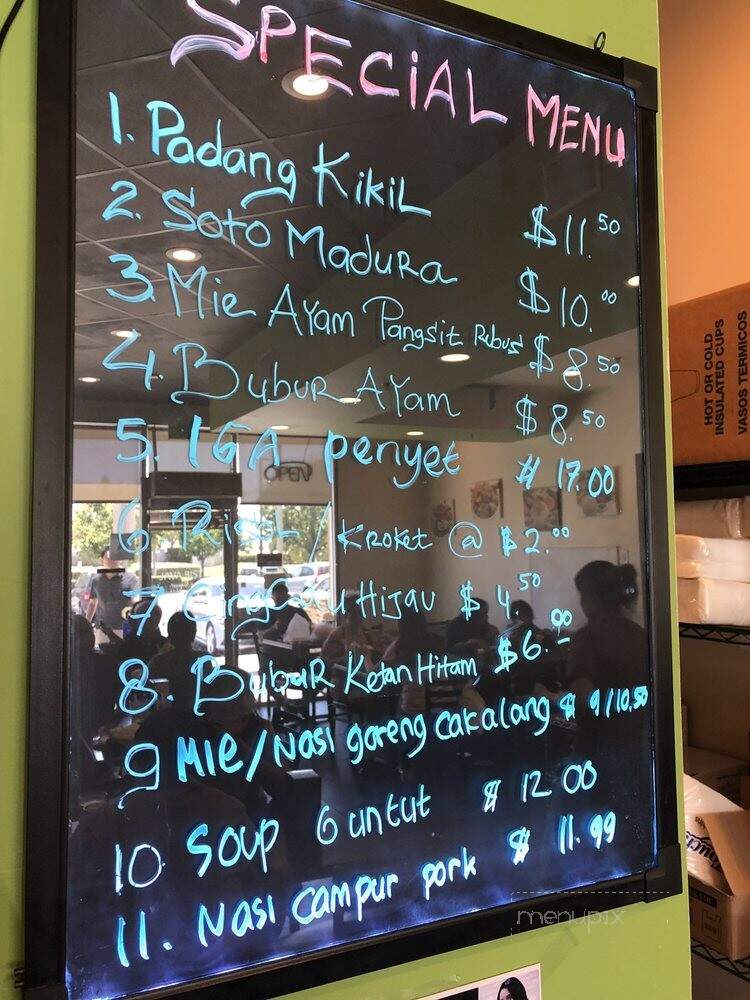 SPECIAL MENU
1. Padang Kikil $11.50
2. Soto Madura $10.00
3. Mie Ayam Pangsit Rebus $8.50
4. Bubur Ayam $8.50
5. IGA penyet $17.00
6. Risol / Kroket @ $2.00
7 Hijau $4.50
8. Bubur Ketan Hitam $6.00
9 Mie/Nasi goreng cakalang $9/10.50
10 Soup Guntut $12.00
11. Nasi campur pork $11.99
OPEN
HOT OR COLD
INSULATED CUPS
VASOS TERMICOS
menupix